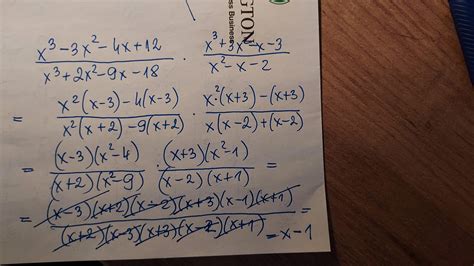 GTON
ess Business
x³-3x²-4x+12 / x³+2x²-9x-18 · x³+3x²-x-3 / x²-x-2
= x²(x-3)-4(x-3) / x²(x+2)-9(x+2) · x²(x+3)-(x+3) / x(x-2)+(x-2)
= (x-3)(x²-4) / (x+2)(x²-9) · (x+3)(x²-1) / (x-2)(x+1) =
= (x-3)(x+2)(x-2)(x+3)(x-1)(x+1) / (x+2)(x-3)(x+3)(x-2)(x+1) =
= x-1